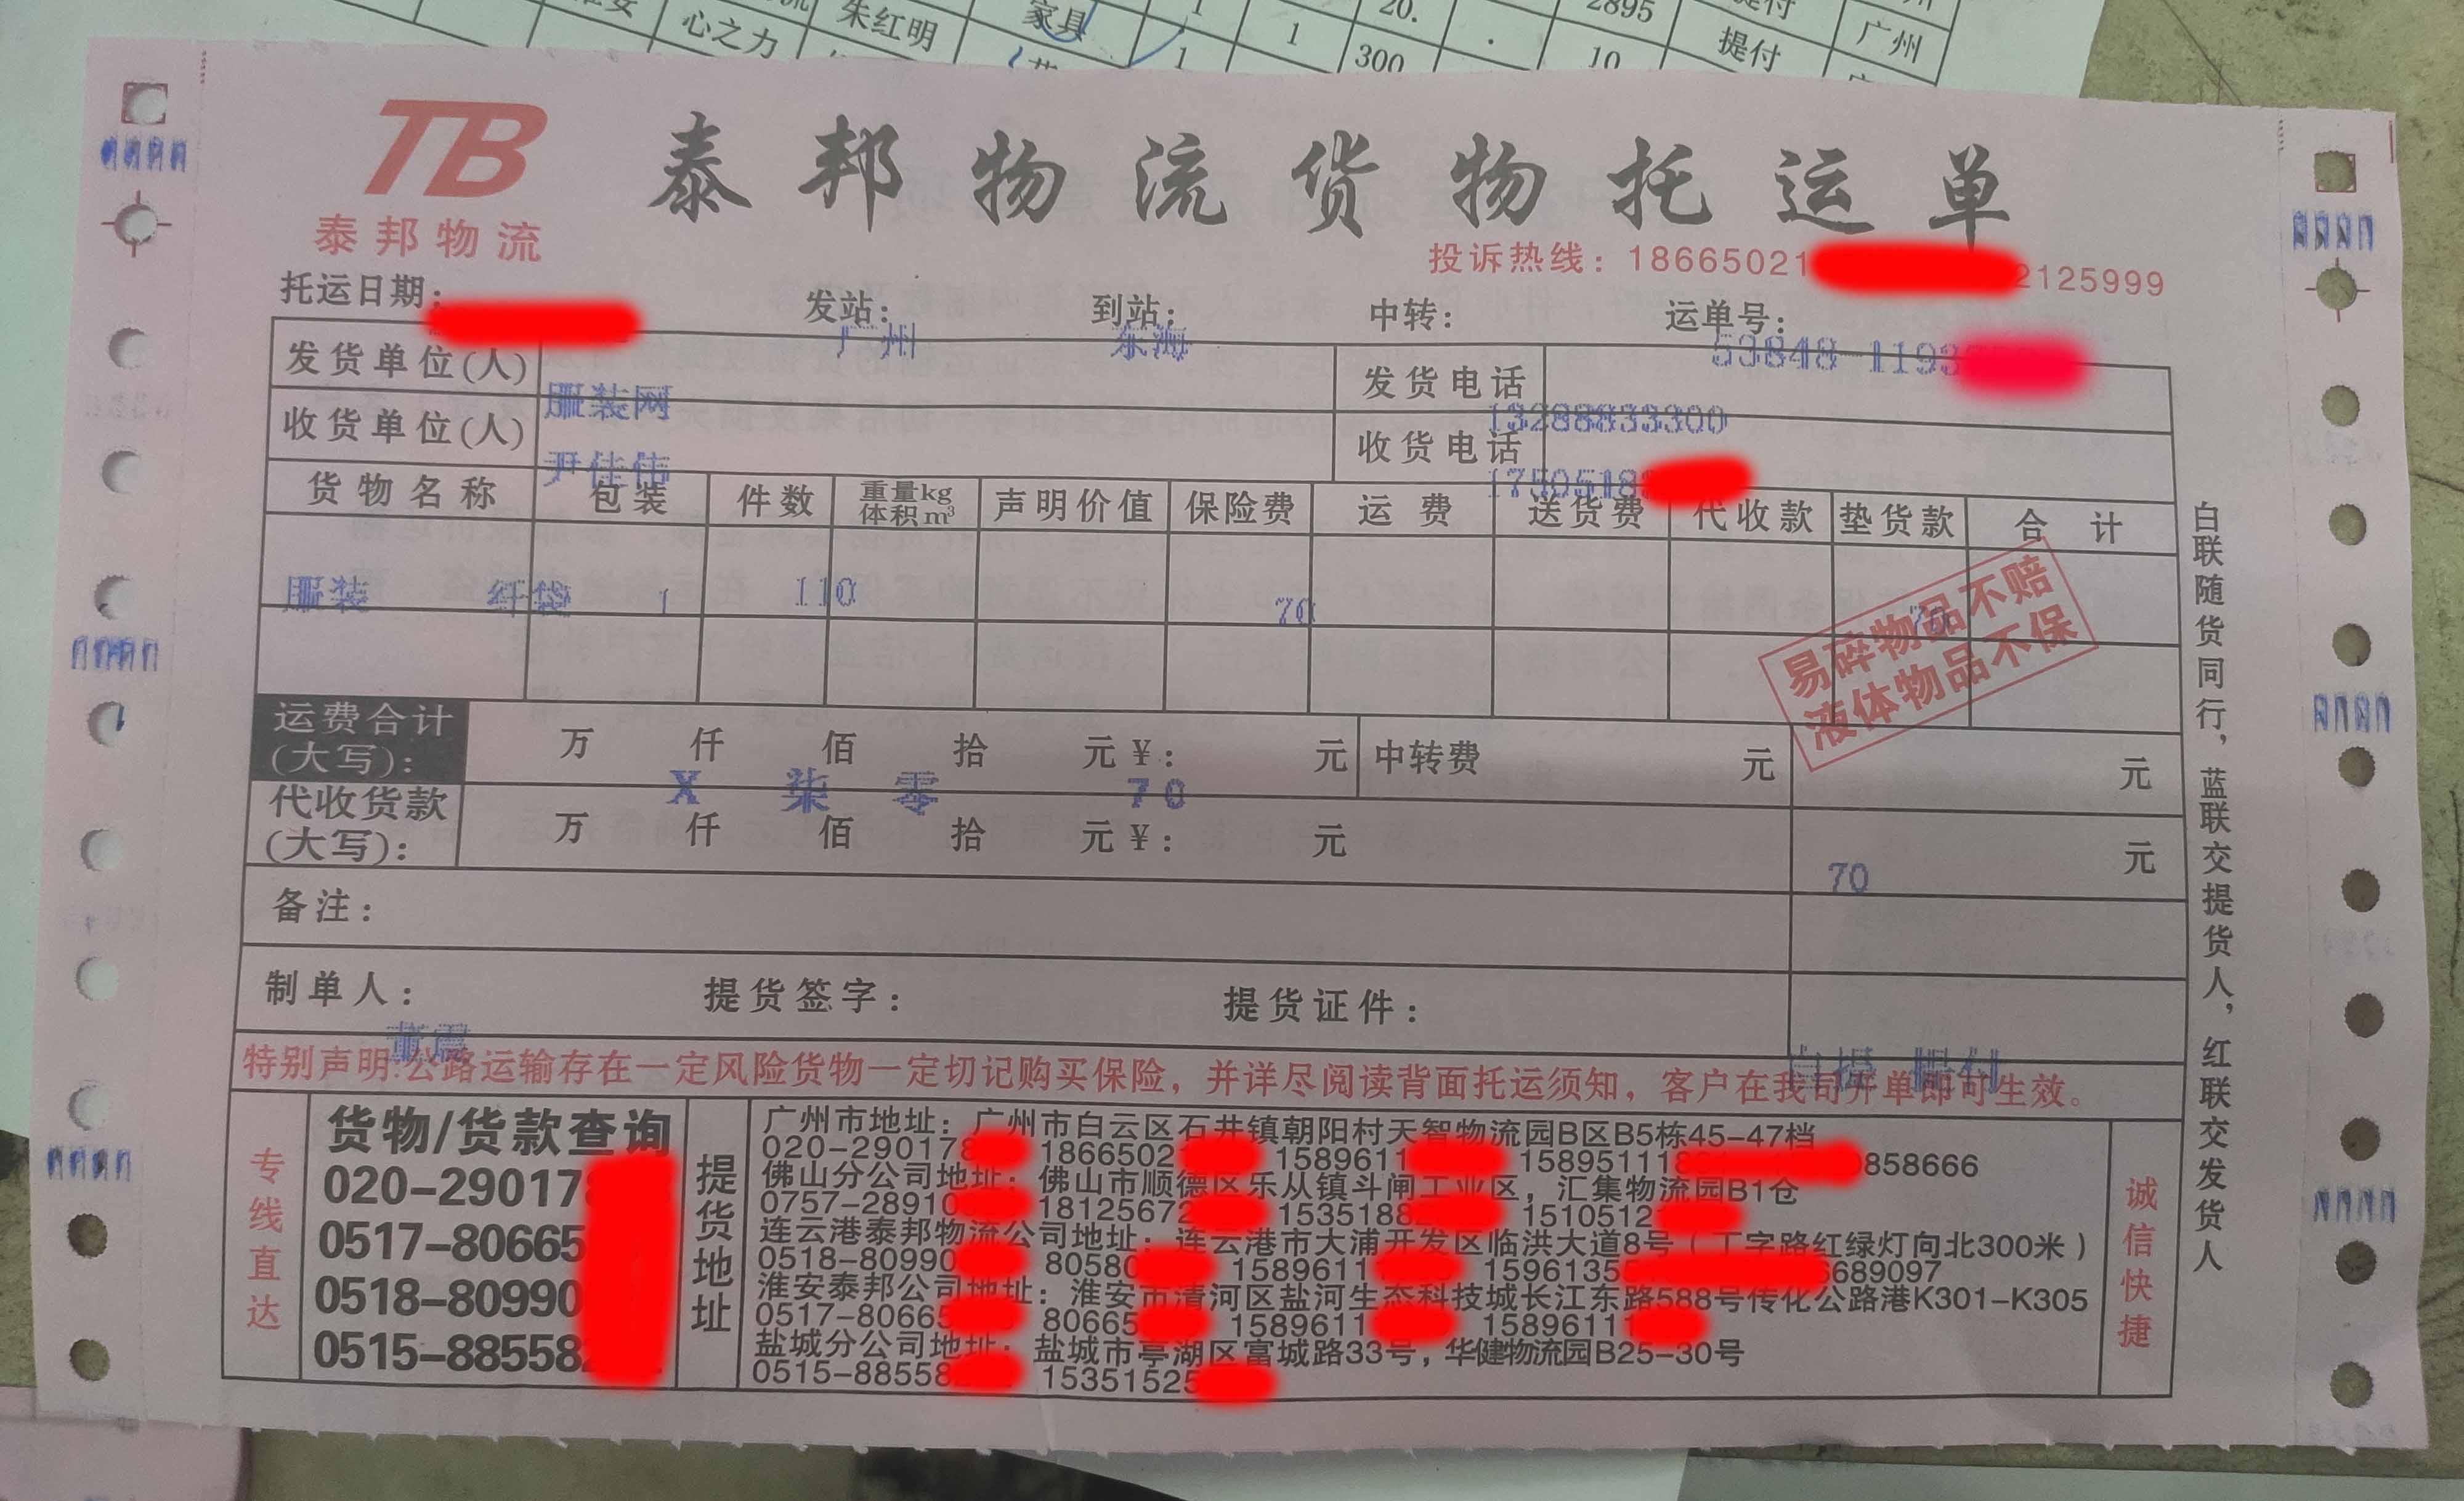 心之力 朱红明 家具 1 20. 2895 提付
1 1 300 . 10 提付 广州
TB
泰邦物流
泰邦物流货物托运单
投诉热线：18665021 2125999
托运日期： 发站： 到站： 中转： 运单号：
广州 东海 53848-1193
发货单位(人) 发货电话
服装网 13288833300
收货单位(人) 收货电话
尹佳伟 1750518
货物名称 包装 件数 重量kg 体积m³ 声明价值 保险费 运费 送货费 代收款 垫货款 合计
服装 纤袋 1 110 70 70
易碎物品不赔
液体物品不保
运费合计(大写)： 万 仟 佰 拾 元¥： 元 中转费 元 元
X 柒 零 70
代收货款(大写)： 万 仟 佰 拾 元¥： 元 元
70
备注：
制单人： 提货签字： 提货证件：
董震 自提 提付
特别声明:公路运输存在一定风险货物一定切记购买保险，并详尽阅读背面托运须知，客户在我司开单即可生效。
专线直达
货物/货款查询
020-29017
0517-80665
0518-80990
0515-88558
提货地址
广州市地址：广州市白云区石井镇朝阳村天智物流园B区B5栋45-47档
020-290178 1866502 1589611 158951118 858666
佛山分公司地址：佛山市顺德区乐从镇斗闸工业区，汇集物流园B1仓
0757-28910 18125672 1535188 1510512
连云港泰邦物流公司地址：连云港市大浦开发区临洪大道8号（丁字路红绿灯向北300米）
0518-80990 80580 1589611 1596135 6689097
淮安泰邦公司地址：淮安市清河区盐河生态科技城长江东路588号传化公路港K301-K305
0517-80665 80665 1589611 1589611
盐城分公司地址：盐城市亭湖区富城路33号，华健物流园B25-30号
0515-88558 15351525
诚信快捷
白联随货同行，蓝联交提货人，红联交发货人